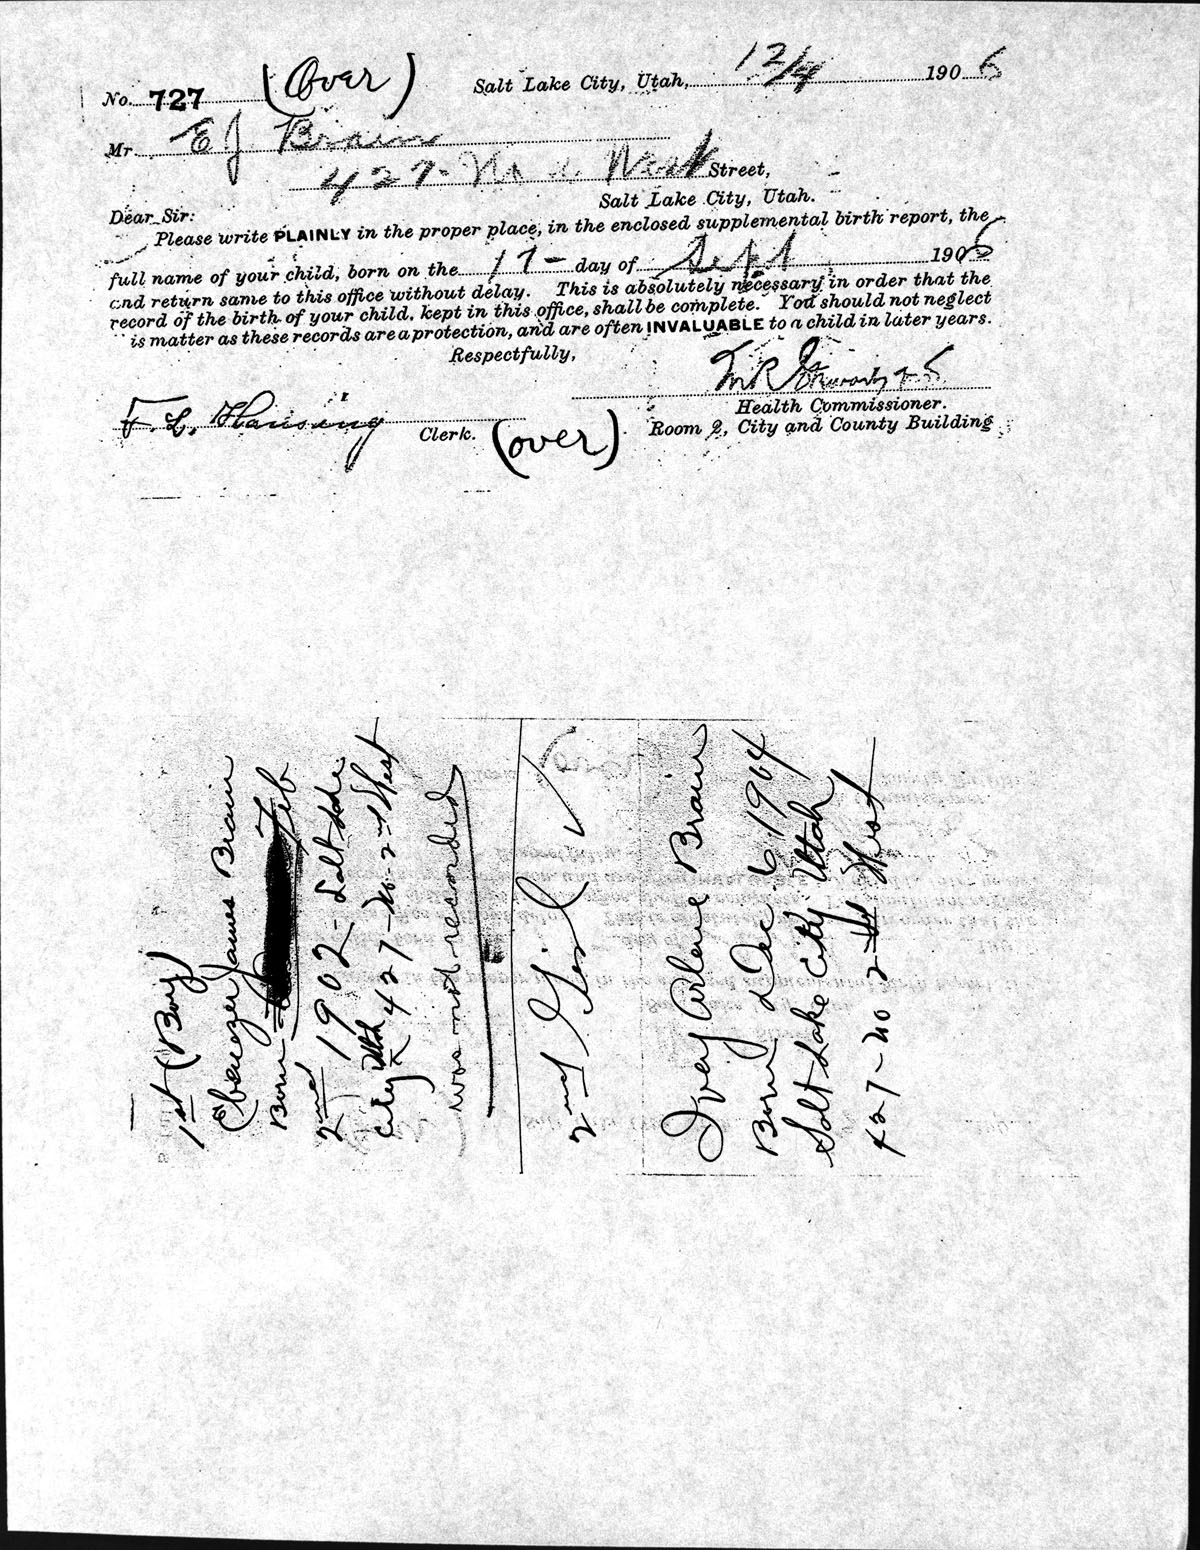 No. 727 (Over) Salt Lake City, Utah, 12/4 1906
Mr. E J Brain
427- No 2 West Street,
Salt Lake City, Utah.
Dear Sir:
Please write PLAINLY in the proper place, in the enclosed supplemental birth report, the
full name of your child, born on the 17- day of Sept 1906
and return same to this office without delay. This is absolutely necessary in order that the
record of the birth of your child, kept in this office, shall be complete. You should not neglect
is matter as these records are a protection, and are often INVALUABLE to a child in later years.
Respectfully,
Health Commissioner.
F. L. Hansing Clerk. (over) Room 2, City and County Building
1st (Boy)
Ebenezer James Brain
Born Feb
2nd 1902- Salt Lake
City Utah 427-No-2nd West
was not recorded
2nd Girl
Ivey Arlene Brain
Born Dec 6 1904
Salt Lake City Utah
427-No 2 West